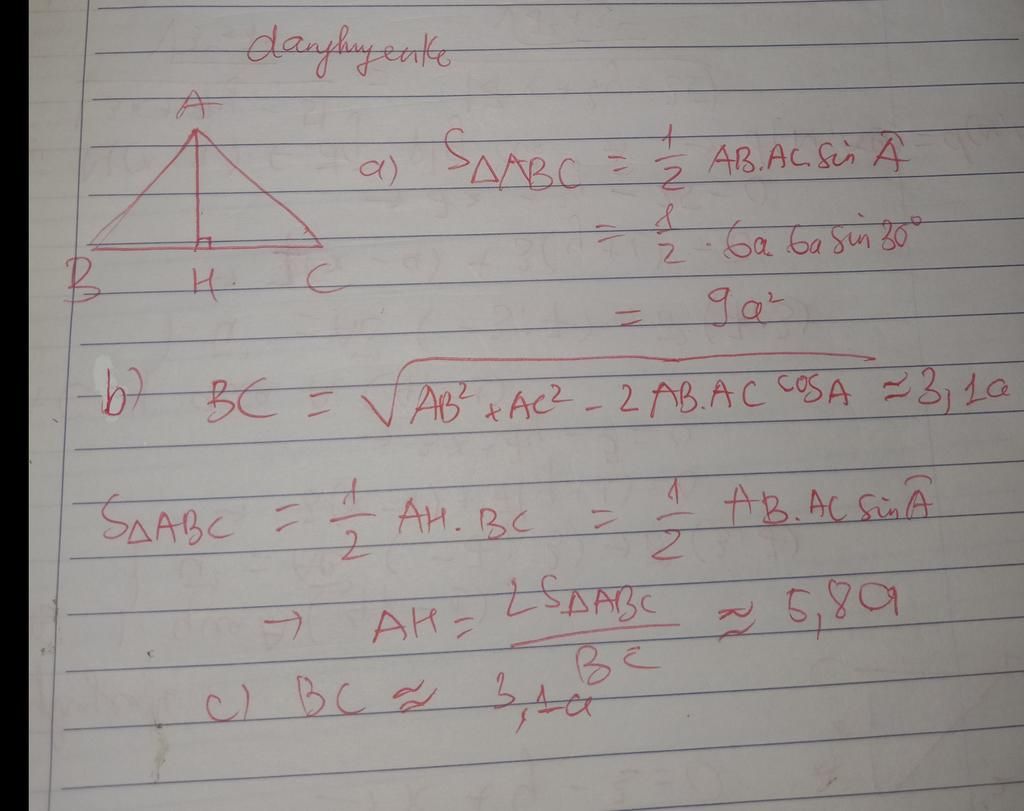 danghuyenke
A
B H C
a) S△ABC = 1/2 AB.AC.sin Â
= 1/2 . 6a 6a sin 30°
= 9a²
b) BC = √(AB² + AC² - 2AB.AC cosA) ≈ 3,1a
S△ABC = 1/2 AH.BC = 1/2 AB.AC sin Â
→ AH = 2S△ABC/BC ≈ 5,8a
c) BC ≈ 3,1a